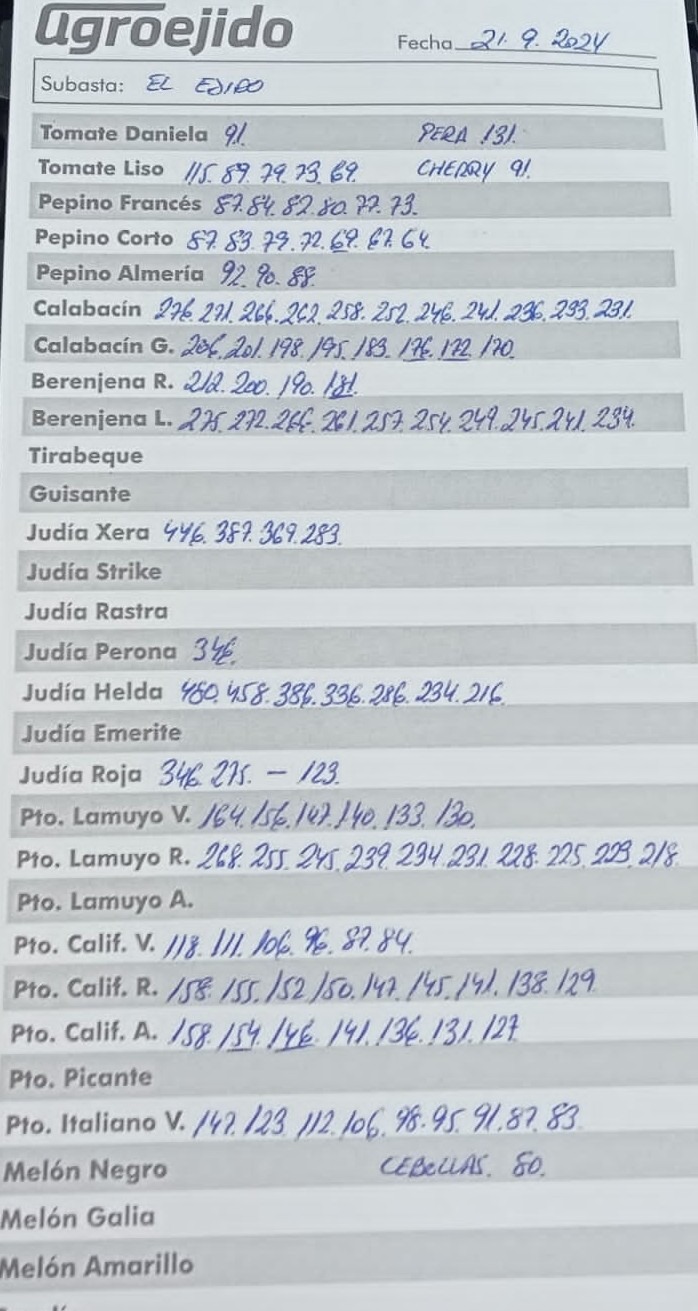 agroejido
Fecha 21. 9. 2024
Subasta: EL EJIDO
Tomate Daniela 91. PERA 131.
Tomate Liso 115. 89. 79. 73. 69. CHERRY 91.
Pepino Francés 87. 84. 82. 80. 77. 73.
Pepino Corto 87. 83. 79. 72. 69. 67. 64
Pepino Almería 92. 90. 88.
Calabacín 276. 271. 266. 262. 258. 252. 246. 241. 236. 233. 231.
Calabacín G. 206. 201. 198. 195. 183. 176. 172. 170.
Berenjena R. 212. 200. 190. 181.
Berenjena L. 275. 272. 266. 261. 257. 254. 249. 245. 241. 234.
Tirabeque
Guisante
Judía Xera 446. 387. 369. 283.
Judía Strike
Judía Rastra
Judía Perona 346.
Judía Helda 480. 458. 386. 336. 286. 234. 216.
Judía Emerite
Judía Roja 346. 275. - 123.
Pto. Lamuyo V. 164. 156. 147. 140. 133. 130.
Pto. Lamuyo R. 268. 255. 245. 239. 234. 231. 228. 225. 223. 218.
Pto. Lamuyo A.
Pto. Calif. V. 118. 111. 106. 96. 87. 84.
Pto. Calif. R. 158. 155. 152 150. 147. 145. 141. 138. 129.
Pto. Calif. A. 158. 154. 146. 141. 136. 131. 127
Pto. Picante
Pto. Italiano V. 147. 123. 112. 106. 98. 95. 91. 87. 83.
Melón Negro CEBOLLAS. 80.
Melón Galia
Melón Amarillo